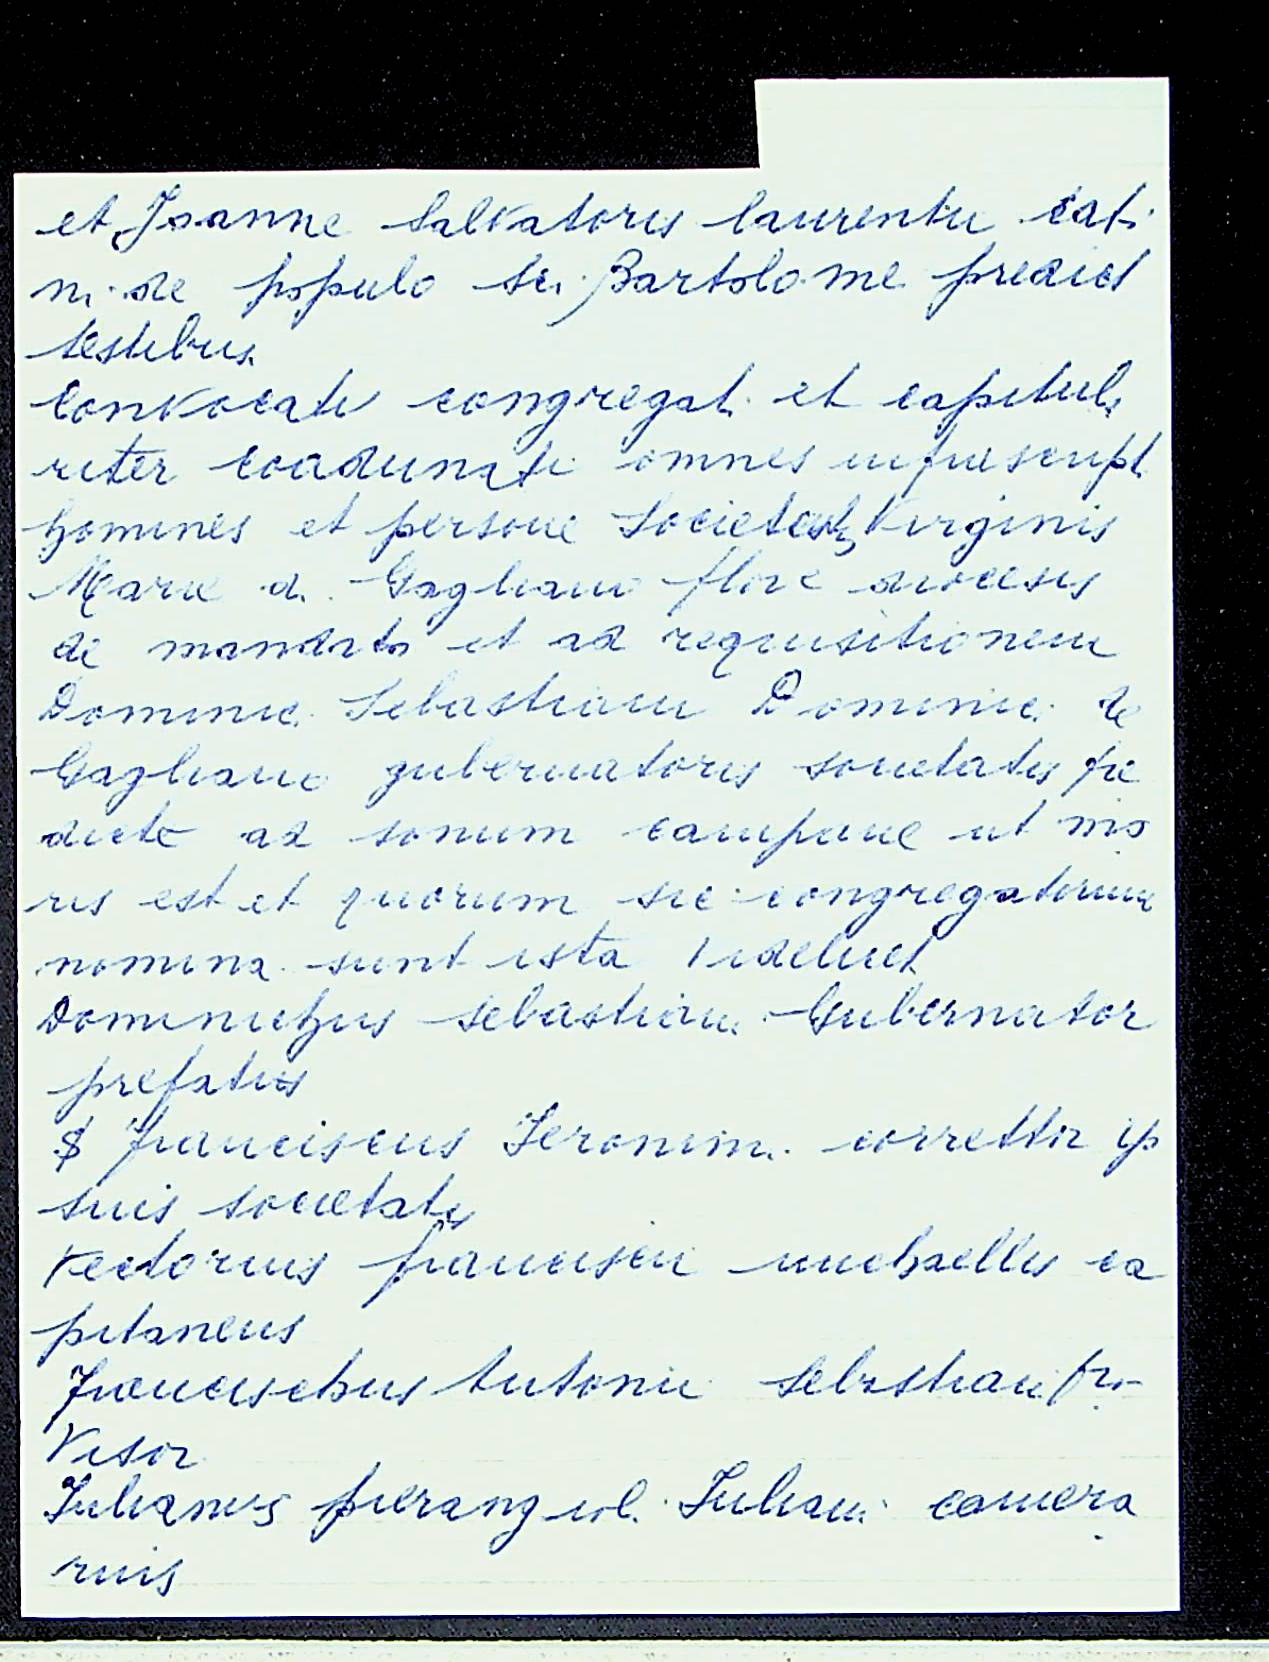 et Joanne Salvatoris laurentii cati
ni de populo sci Bartolome predict
testibus
Convocati congregat. et capitul
riter coadunati omnes infrascript
homines et persone Societatis Virginis
Marie d. Gagliano flore diocesis
de mandato et ad requisitionem
Dominic. Sebastiani Dominici de
Gagliano gubernatoris societatis pre
dicte ad sonum campane ut mo
ris est et quorum sic congregatorum
nomina sunt ista videlicet
Dominichus Sebastiani Gubernator
prefatus
$ franciscus Jeronim. correttor ip
suis societatis
Vectorius francisci michaellis ca
pitaneus
Francischus Antonii Sebastiani pro-
visor
Julianus pierangiol. Juliani camera
rius